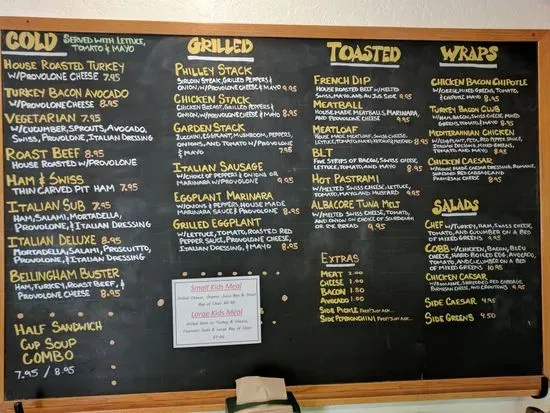 COLD SERVED WITH LETTUCE,
TOMATO & MAYO
HOUSE ROASTED TURKEY
W/PROVOLONE CHEESE 7.95
TURKEY BACON AVOCADO
W/PROVOLONE CHEESE 8.95
VEGETARIAN 7.95
W/CUCUMBER, SPROUTS, AVOCADO,
SWISS, PROVOLONE, ITALIAN DRESSING
ROAST BEEF 8.95
HOUSE ROASTED W/PROVOLONE
HAM & SWISS
THIN CARVED PIT HAM 7.95
ITALIAN SUB 7.95
HAM, SALAMI, MORTADELLA,
PROVOLONE, & ITALIAN DRESSING
ITALIAN DELUXE 8.95
MORTADELLA, SALAMI, PROSCUITTO,
PROVOLONE, & ITALIAN DRESSING
BELLINGHAM BUSTER
HAM, TURKEY, ROAST BEEF, &
PROVOLONE CHEESE 8.95
HALF SANDWICH
CUP SOUP
COMBO
7.95 / 8.95
GRILLED
PHILLEY STACK
SIRLOIN STEAK, GRILLED PEPPERS &
ONION, W/PROVOLONE & MAYO 9.95
CHICKEN STACK
CHICKEN BREAST, GRILLED PEPPERS &
ONION, W/PROVOLONE & MAYO 8.95
GARDEN STACK
ZUCCHINI, EGGPLANT, MUSHROOM, PEPPERS,
ONIONS, AND TOMATO W/PROVOLONE
& MAYO 7.95
ITALIAN SAUSAGE
W/CHOICE OF PEPPERS & ONIONS OR
MARINARA W/PROVOLONE 9.95
EGGPLANT MARINARA
W/ONIONS & PEPPERS, HOUSE MADE
MARINARA SAUCE & PROVOLONE 8.95
GRILLED EGGPLANT
W/LETTUCE, TOMATO, ROASTED RED
PEPPER SAUCE, PROVOLONE CHEESE,
& ITALIAN DRESSING 8.95
Small Kids Meal
Large Kids Meal
TOASTED
FRENCH DIP
HOUSE ROASTED BEEF W/MELTED
SWISS, MAYO, AND AU JUS SIDE 9.95
MEATBALL
HOUSE MADE MEATBALLS, MARINARA,
AND PROVOLONE CHEESE 8.95
MEATLOAF
HOUSE MADE MEATLOAF, SWISS CHEESE,
LETTUCE, TOMATO, MAYO, KETCHUP & MUSTARD 8.95
BLT
FIVE STRIPS OF BACON, SWISS CHEESE,
LETTUCE, TOMATO, AND MAYO 8.95
HOT PASTRAMI
W/MELTED SWISS CHEESE, LETTUCE,
TOMATO, MAYO, AND MUSTARD 8.95
ALBACORE TUNA MELT
W/MELTED SWISS CHEESE, TOMATO,
AND ONION ON CHOICE OF SOURDOUGH
OR RYE BREAD 9.95
EXTRAS
MEAT 2.00
CHEESE 1.00
BACON 1.50
AVOCADO 1.00
SIDE PICKLE FREE! JUST ASK...
SIDE PEPERONCHINI FREE! JUST ASK...
WRAPS
CHICKEN BACON CHIPOTLE
W/CHEESE, MIXED GREENS, TOMATO,
& CHIPOTLE MAYO 8.95
TURKEY BACON CLUB
W/HAM, BACON, SWISS CHEESE, MIXED
GREENS, TOMATO, & MAYO 8.95
MEDITERRANEAN CHICKEN
W/PEPPERONCINI, FETA, RED PEPPER SAUCE,
8.95
CHICKEN CAESAR
W/HOUSE MADE CAESAR DRESSING, ROMAINE,
SHREDDED RED CABBAGE, AND
PARMESAN CHEESE 8.95
SALADS
CHEF W/TURKEY, HAM, SWISS CHEESE,
TOMATO, AND CUCUMBER ON A BED
OF MIXED GREENS 9.95
COBB W/CHICKEN, BACON, BLEU
CHEESE, HARD BOILED EGG, AVOCADO,
TOMATO, AND CUCUMBER ON A BED
OF MIXED GREENS 10.95
CHICKEN CAESAR
W/ROMAINE, SHREDDED RED CABBAGE,
PARMESAN CHEESE, AND CROUTONS 9.95
SIDE CAESAR 4.95
SIDE GREENS 4.50